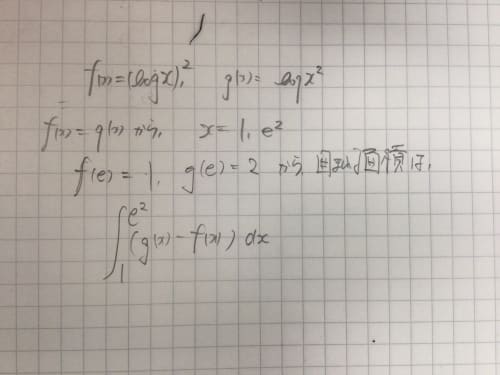 f(x)=(log x)², g(x)= log x²
f(x)=g(x) から, x=1, e²
f(e)=1, g(e)=2 から 囲まれる面積は,
∫₁^{e²} (g(x)-f(x)) dx